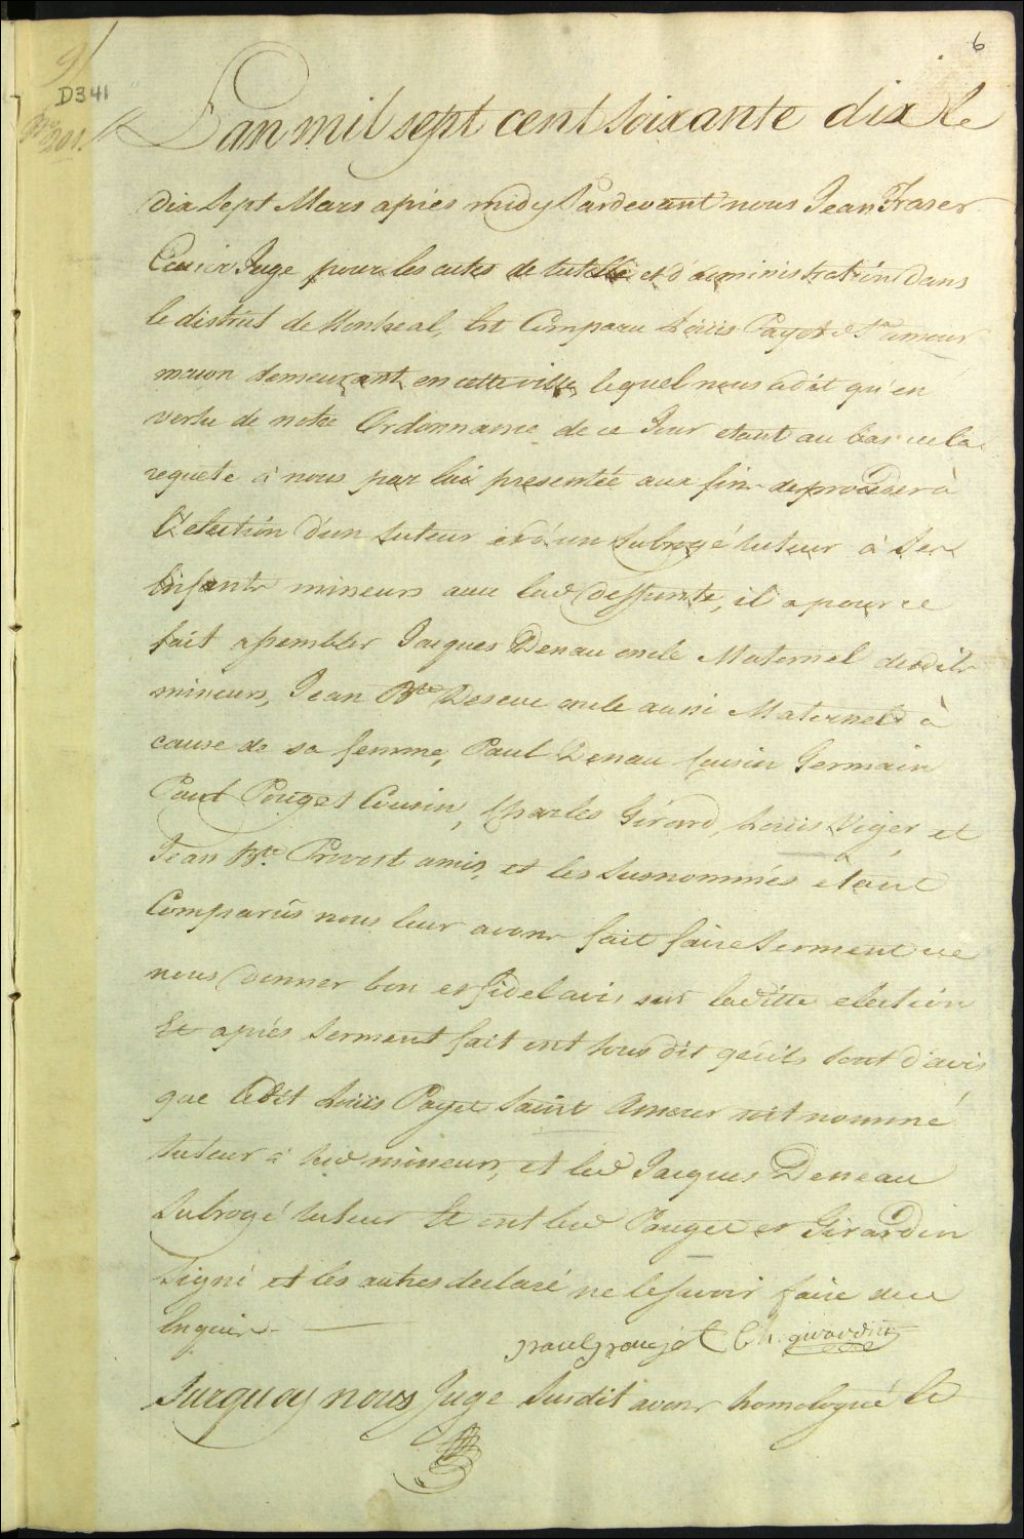 6
D341
201.
L'an mil sept cent soixante dix le
dix Sept Mars aprés midy Pardevant nous Jean Fraser
Ecuier Juge pour les actes de tutelle et d'administration dans
le district de Montreal, Est Comparu Loüis Payet dt St amour
macon demeurant en cette ville, lequel nous a dit qu'en
vertu de notre Ordonnance de ce Jour etant au bas de la
requete à nous par lui presentée aux fins de proceder à
L'election d'un tuteur et d'un Subrogé tuteur à Ses
Enfants mineurs avec lad deffunte, il a pour ce
fait assembler Jacques Denau oncle Maternel desdits
mineurs, Jean Bte Deseve oncle aussi Maternel à
cause de sa femme, Paul Denau Cousin Germain
Paul Pouget Cousin, Charles Girard, Loüis Viger, et
Jean Bte. Provost amis, et les Susnommés étant
Comparûs nous leur avons fait faire Serment de
nous donner bon et fidel avis sur laditte election
Et aprés Serment fait ont tous dit qu'ils sont d'avis
que ledit Loüis Payet Saint Amour soit nommé
tuteur à sesd mineurs, et led Jacques Deneau
Subrogé tuteur Et ont lesd Pouget et Girardin
Signé et les autres declaré ne le scavoir faire de ce
Enquis.
paul pouget Ch. girardin
Surquoy nous Juge Susdit avons homologué le